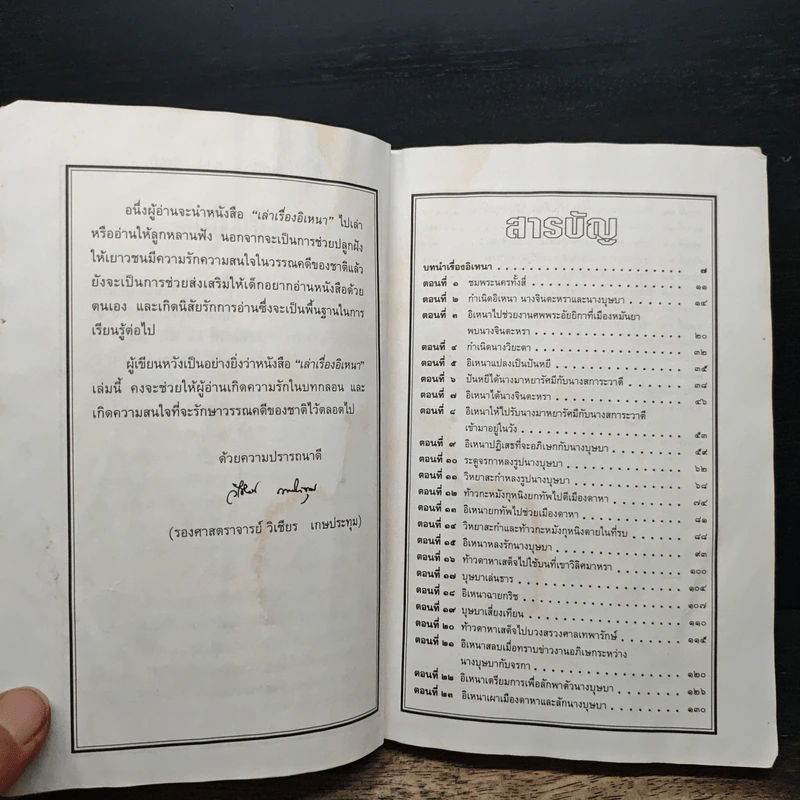 อนึ่งผู้อ่านจะนำหนังสือ “เล่าเรื่องอิเหนา” ไปเล่า
หรืออ่านให้ลูกหลานฟัง นอกจากจะเป็นการช่วยปลูกฝัง
ให้เยาวชนมีความรักความสนใจในวรรณคดีของชาติแล้ว
ยังจะเป็นการช่วยส่งเสริมให้เด็กอยากอ่านหนังสือด้วย
ตนเอง และเกิดนิสัยรักการอ่านซึ่งจะเป็นพื้นฐานในการ
เรียนรู้ต่อไป
ผู้เขียนหวังเป็นอย่างยิ่งว่าหนังสือ “เล่าเรื่องอิเหนา”
เล่มนี้ คงจะช่วยให้ผู้อ่านเกิดความรักในบทกลอน และ
เกิดความสนใจที่จะรักษาวรรณคดีของชาติไว้ตลอดไป
ด้วยความปรารถนาดี
(รองศาสตราจารย์ วิเชียร เกษประทุม)
สารบัญ
บทนำเรื่องอิเหนา ๗
ตอนที่ ๑ ชมพระนครทั้งสี่ ๑๑
ตอนที่ ๒ กำเนิดอิเหนา นางจินตะหราและนางบุษบา ๑๔
ตอนที่ ๓ อิเหนาไปช่วยงานศพพระอัยยิกาที่เมืองหมันยา
พบนางจินตะหรา ๒๐
ตอนที่ ๔ กำเนิดนางวิยะดา ๓๒
ตอนที่ ๕ อิเหนาแปลงเป็นปันหยี ๓๕
ตอนที่ ๖ ปันหยีได้นางมาหยารัศมีกับนางสการะวาตี ๓๘
ตอนที่ ๗ อิเหนาได้นางจินตะหรา ๔๖
ตอนที่ ๘ อิเหนาให้ไปรับนางมาหยารัศมีกับนางสการะวาตี
เข้ามาอยู่ในวัง ๕๓
ตอนที่ ๙ อิเหนาปฏิเสธที่จะอภิเษกกับนางบุษบา ๕๙
ตอนที่ ๑๐ ระตูจรกาหลงรูปนางบุษบา ๖๒
ตอนที่ ๑๑ วิหยาสะกำหลงรูปนางบุษบา ๖๘
ตอนที่ ๑๒ ท้าวกะหมังกุหนิงยกทัพไปตีเมืองดาหา ๗๕
ตอนที่ ๑๓ อิเหนายกทัพไปช่วยเมืองดาหา ๘๑
ตอนที่ ๑๔ วิหยาสะกำและท้าวกะหมังกุหนิงตายในที่รบ ๘๘
ตอนที่ ๑๕ อิเหนาหลงรักนางบุษบา ๙๓
ตอนที่ ๑๖ ท้าวดาหาเสด็จไปใช้บนที่เขาวิลิศมาหรา ๑๐๐
ตอนที่ ๑๗ บุษบาเล่นธาร ๑๐๔
ตอนที่ ๑๘ อิเหนาฉายกริช ๑๐๗
ตอนที่ ๑๙ บุษบาเสี่ยงเทียน ๑๑๐
ตอนที่ ๒๐ ท้าวดาหาเสด็จไปบวงสรวงศาลเทพารักษ์ ๑๑๕
ตอนที่ ๒๑ อิเหนาสลบเมื่อทราบข่าวงานอภิเษกระหว่าง
นางบุษบากับจรกา ๑๒๐
ตอนที่ ๒๒ อิเหนาเตรียมการเพื่อลักพาตัวนางบุษบา ๑๒๖
ตอนที่ ๒๓ อิเหนาเผาเมืองดาหาและลักนางบุษบา ๑๓๐